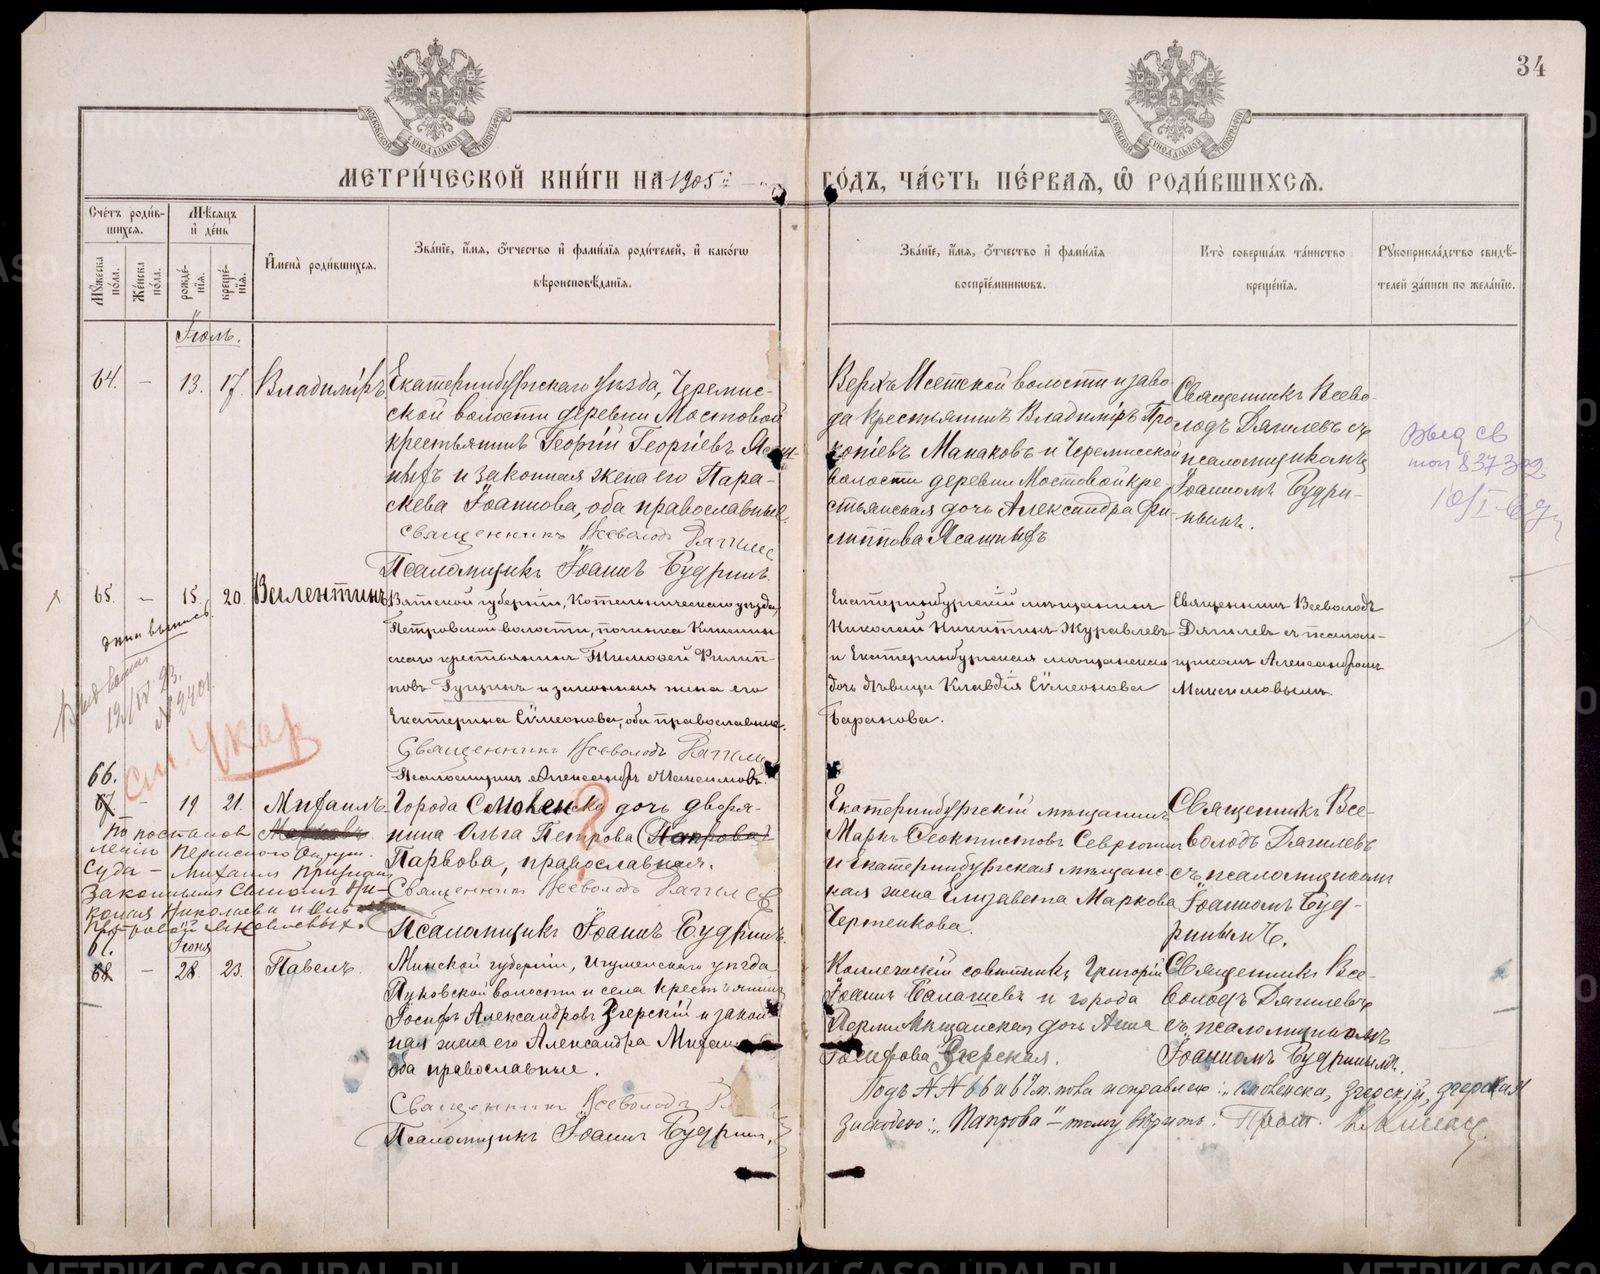 34
МЕТРИ́ЧЕСКОЙ КНИ́ГИ НА 1905й ГО́ДЪ, ЧА́СТЬ ПЕ́РВАЯ, Ѡ РОДИ́ВШИХСЯ.
Сче́тъ роди́в-
шихся.
Мꙋ́жеска по́ла.
Же́нска по́ла.
Мѣ́сяцъ и де́нь
рожде́нїя.
креще́нїя.
И҆мена̀ роди́вшихся.
Зва́нїе, и҆́мя, о҆́тчество и҆ фами́лїя роди́телей, и҆ како́гѡ
вѣроисповѣ́данїя.
Зва́нїе, и҆́мя, о҆́тчество и҆ фами́лїя
воспрїе́мникѡвъ.
Кто̀ соверша́лъ та́инство
креще́нїя.
Рꙋкоприкла́дство свидѣ́-
телей за́писи по жела́нїю.
Іюль.
64. – 13. 17. Владиміръ
Екатеринбургскаго уѣзда, Черемис-
ской волости деревни Мостовой
крестьянинъ Георгій Георгіевъ
и законная жена его Пара-
скева Іоаннова, оба православные.
Священникъ Всеволодъ Дягилевъ
Псаломщикъ Іоаннъ Будринъ.
Верхъ Исетской волости и заво-
да крестьянинъ Владиміръ Про-
копіевъ Манаковъ и Черемисской
волости деревни Мостовой кре-
стьянская дочь Александра Фи-
липпова
Священникъ Всево-
лодъ Дягилевъ съ
псаломщикомъ
Іоанномъ Будри-
нымъ.
Выд св
837392
65. – 15. 20. Валентинъ
Вятской губерніи, Котельническаго уѣзда,
Петровской волости, починка
крестьянинъ Тимоѳей Филип-
повъ и законная жена его
Екатерина Сѵмеонова, оба православные.
Священникъ Всеволодъ Дягилевъ
Псаломщикъ Александръ Максимовъ.
Екатеринбургскій мѣщанинъ
Николай Никитинъ Журавлевъ
и Екатеринбургская мѣщанская
дочь дѣвица Клавдія Сѵмеонова
Баранова.
Священникъ Всеволодъ
Дягилевъ съ псалом-
щикомъ Александромъ
Максимовымъ.
См. Указ
66.
67. – 19 21. Михаилъ
Города Смоленска дочь дворя-
нина Ольга Петрова (Папрова)
Парвова, православная.
Священникъ Всеволодъ Дягилев
Псаломщикъ Іоаннъ Будринъ.
По постанов
лению Пермского Окруж.
Суда – Михаил признан
законным сыном Ни-
колая Николаева и Оль
Екатеринбургскій мѣщанинъ
Маркъ Ѳеоктистовъ Севрюгинъ
и Екатеринбургская мѣщанс-
кая жена Елизавета Маркова
Чертенкова.
Священникъ Все-
володъ Дягилевъ
съ псаломщикомъ
Іоанномъ Буд-
ринымъ.
67.
Іюня
68. – 28. 23. Павелъ.
Минской губерніи, Игуменскаго уѣзда
Пуховской волости и села крестьянинъ
Іосифъ Александровъ Згерскій и закон-
ная жена его Александра
оба православные.
Священникъ Всеволодъ
Псаломщикъ Іоаннъ Будринъ,
Коллежскій совѣтникъ Григорій
Іоаннъ Балашевъ и города
Перми мѣщанская дочь Анна
Іосифова Згерская.
Священникъ Все-
володъ Дягилевъ
съ псаломщикомъ
Іоанномъ Будринымъ.
Подъ №№ 66 и 67 исправлено: „Смоленска, Згерскій, Згерская
зискобено: „Папрова" – тому вѣрить. Прот.
METRIKI.GASO-URAL.RU